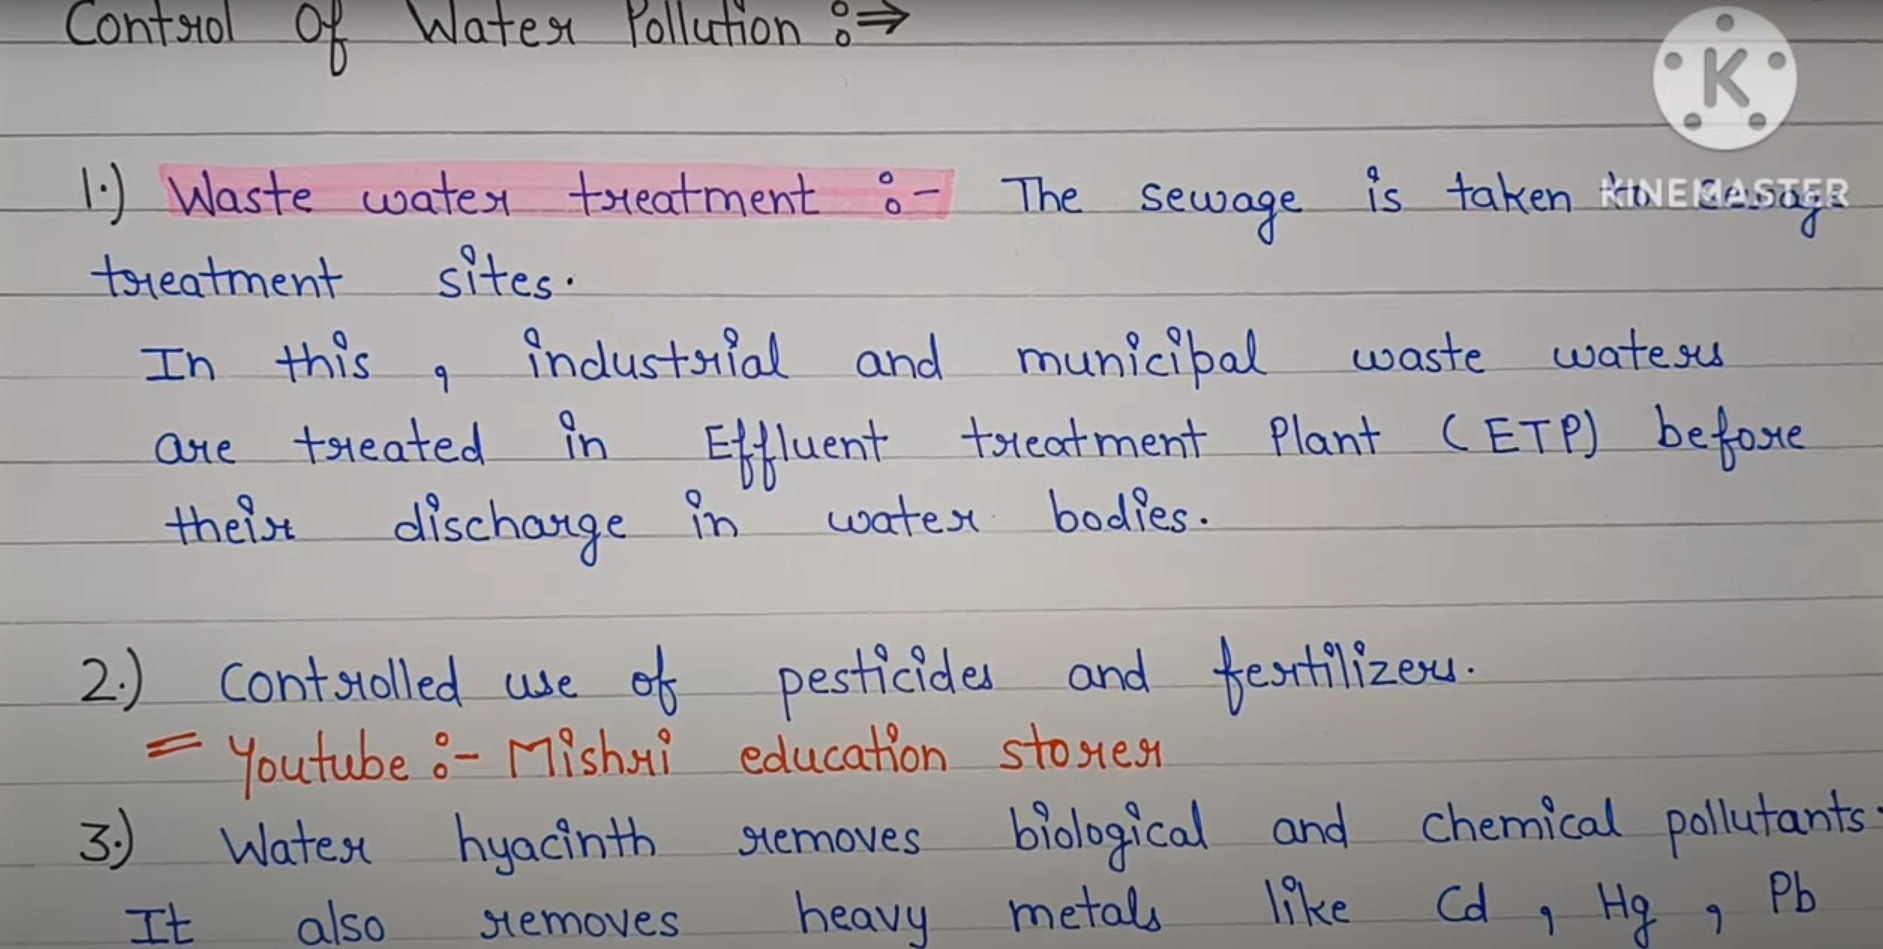 Control Of Water Pollution :⇒
K
KINEMASTER
1.) Waste water treatment :- The sewage is taken
treatment sites.
In this, industrial and municipal waste waters
are treated in Effluent treatment Plant (ETP) before
their discharge in water bodies.
2.) Controlled use of pesticides and fertilizers.
= Youtube :- Mishri education storer
3.) Water hyacinth removes biological and chemical pollutants.
It also removes heavy metals like Cd, Hg, Pb